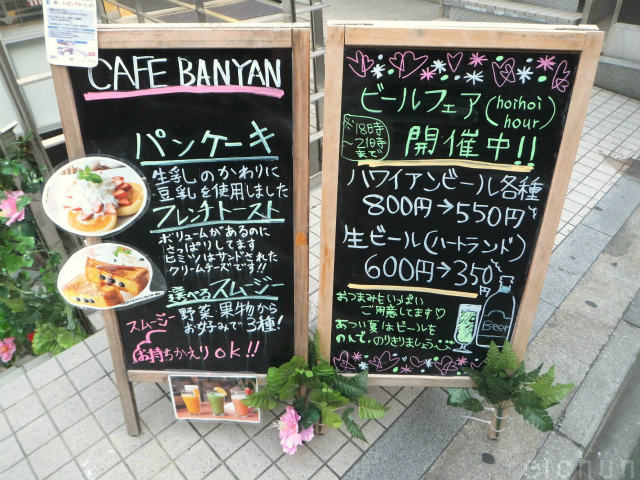 CAFE BANYAN
パンケーキ
生乳のかわりに
豆乳を使用しました
フレンチトースト
ボリュームがあるのに
さっぱりしてます
ヒミツはサンドされた
クリームチーズです!!
選べるスムージー
野菜、果物から
お好みで3種!
スムージー
お持ちかえりOK!!
ビールフェア(hoihoi hour)
※18時～21時まで
開催中!!
ハワイアンビール各種
800円→550円
生ビール(ハートランド)
600円→350円
おつまみもいっぱい
ご用意してます♡
あつい夏はビールを
のんで、のりきりましょう
Beer